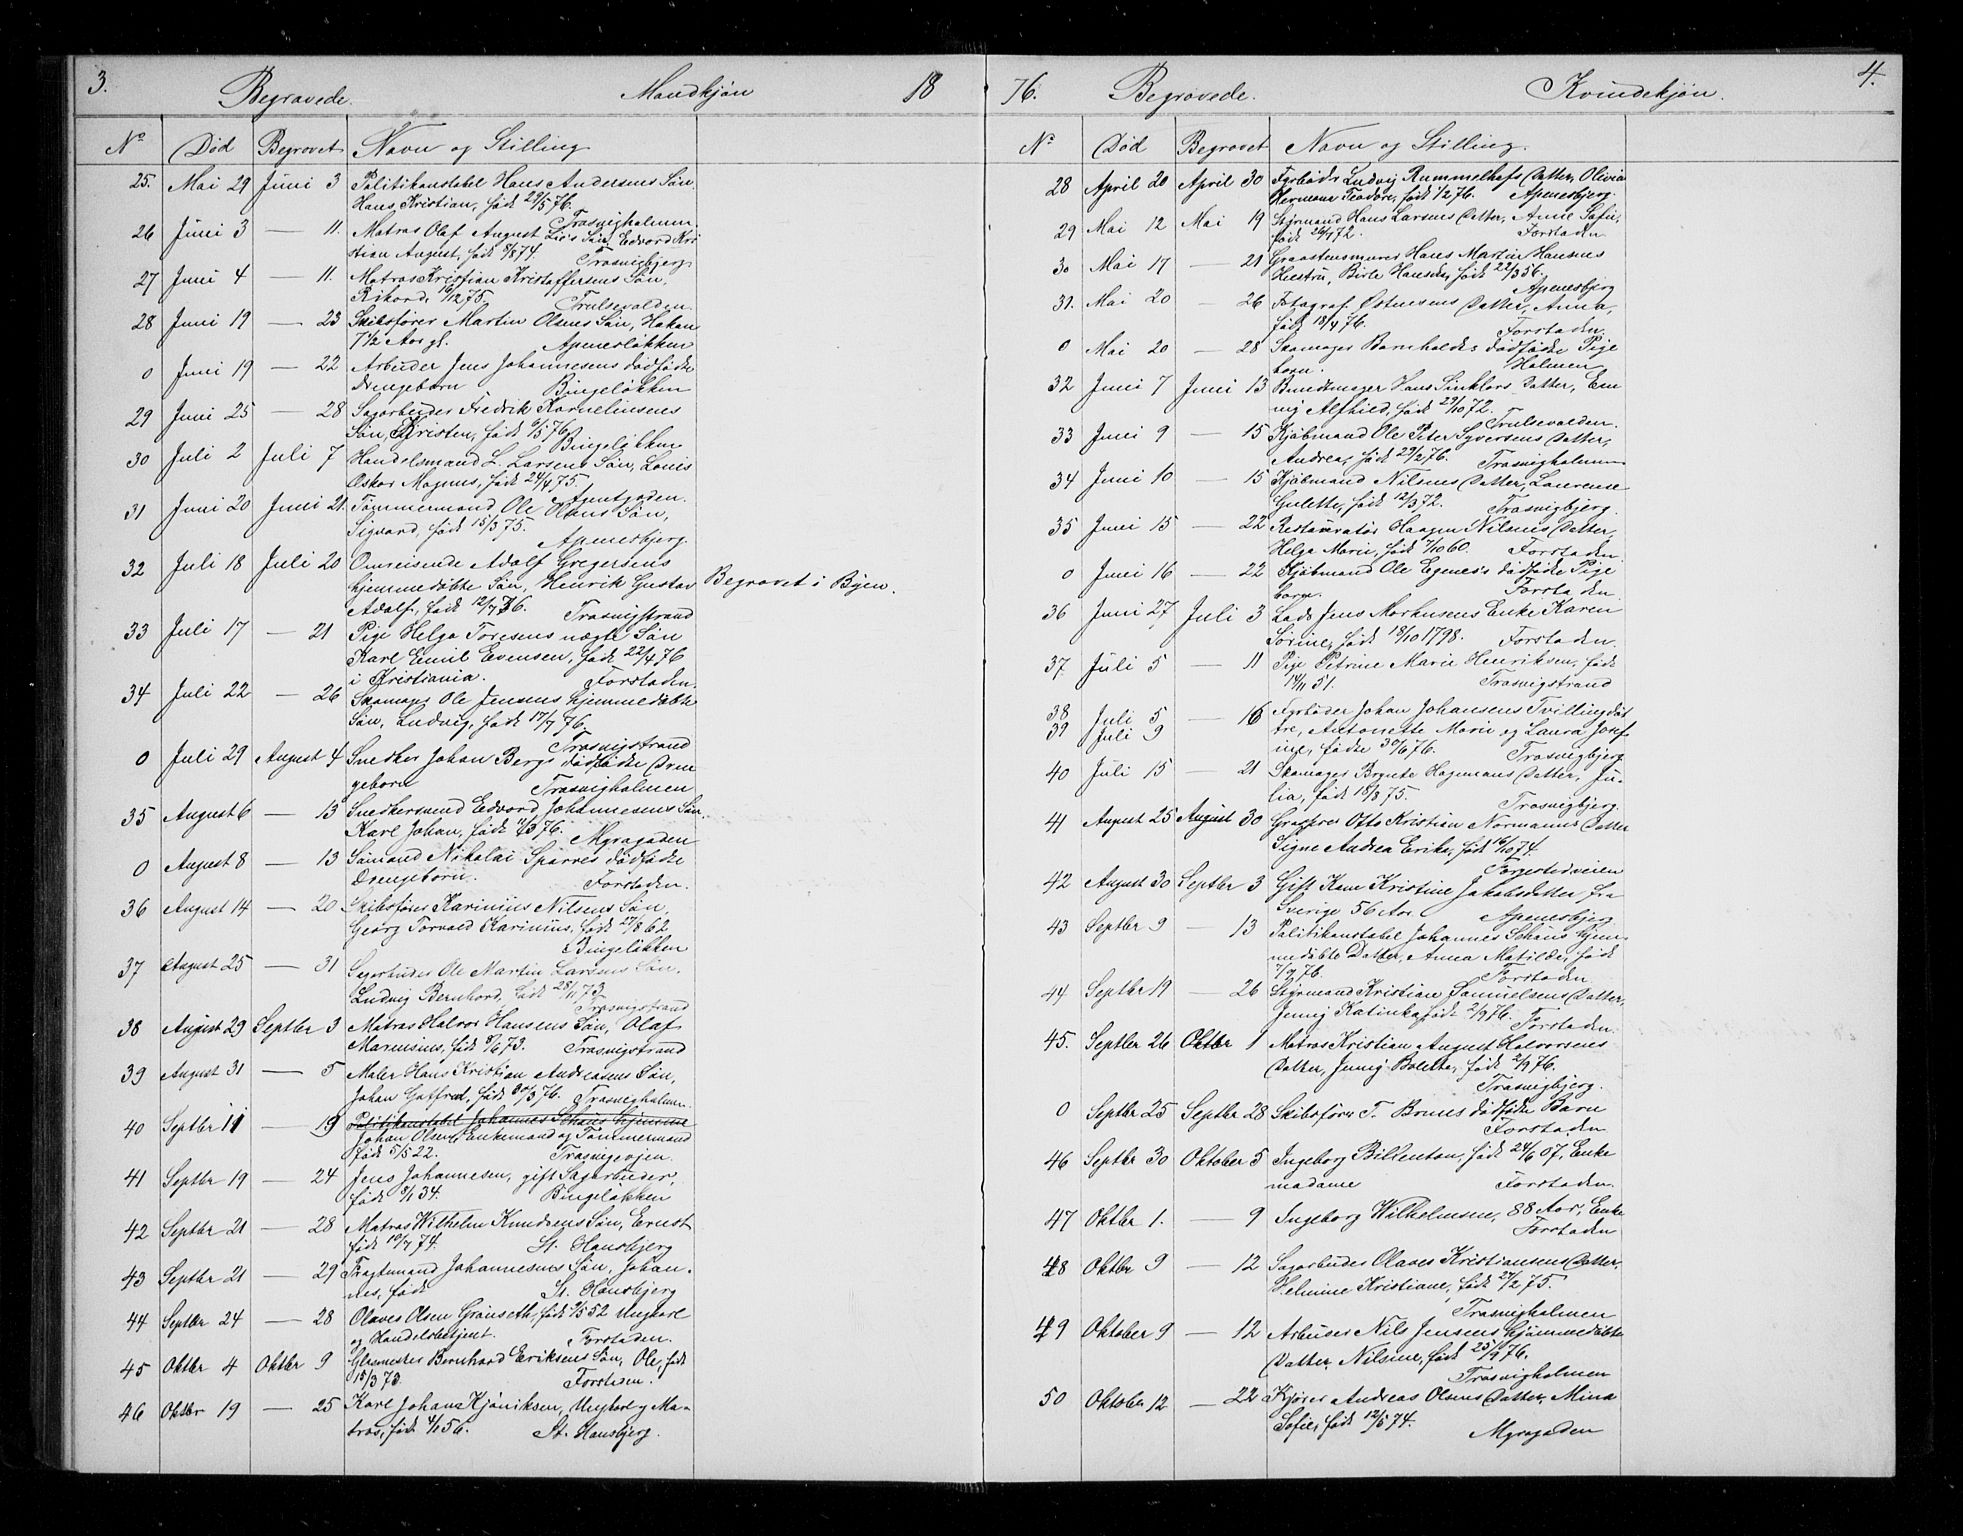 3. Begravede. Mandkjøn 18
No Død Begravet Navn og Stilling
25. Mai 29 Juni 3 Politikonstabel Hans Andersens Søn,
Hans Kristian, født 29/5 76.
Trosvigholmen
26 Juni 3 — 11. Matros Olaf August Lies Søn, Edvard Kri
stian August, født 8/8 74. Trosvigbjerg
27 Juni 4 — 11. Matros Kristian Kristoffersens Søn,
Rikard, 16/12 75. Trulsevolden
28 Juni 19 — 23 Skibsfører Martin Olsens Søn, Hakon
7 1/2 Aar gl. Apenesløkken
0 Juni 19 — 22 Arbeider Jens Johannesens dødfødte
Drengebarn Bingeløkken
29 Juni 25 — 28 Sagarbeider Fredrik Kornelinsens
Søn, Kristen, født 6/5 76.
Bingeløkken
30 Juli 2 Juli 7 Handelsmand L. Larsens Søn, Louis
Oskar Magnus, født 24/4 75.
Agentgaden.
31 Juni 20 Juni 21. Tømmermand Ole Olsens Søn,
Sigvard, født 15/3 75.
Apenesbjerg.
32 Juli 18 Juli 20 Omreisende Adolf Gregersens
hjemmedøbte Søn, Henrik Gustav Begravet i Byen.
Adolf, født 12/7 76. Trosvigstrand
33 Juli 17 — 21 Pige Helga Toresens uægte Søn
Karl Emil Evensen, født 22/4 76
i Kristiania. Forstaden.
34 Juli 22 — 26 Skomager Ole Jensens hjemmedøbte
Søn, Ludvig, født 17/7 76.
Trosvigstrand
0 Juli 29 August 4 Snedker Johan Bergs dødfødte Dren
gebarn Trosvigholmen
35 August 6 — 13 Snedkersvend Edvard Johannesens Søn,
Karl Johan, født 11/3 76. Myragaden
0 August 8 — 13 Sømand Nikolai Sparres dødfødte
Drengebarn. Forstaden.
36 August 14 — 20 Skibsfører Karinius Nilsens Søn,
Georg Torvald Karinius, født 27/8 62
Bingeløkken
37 August 25 — 31 Sagarbeider Ole Martin Larsens Søn,
Ludvig Bernhard, født 28/11 73
Trosvigstrand
38 August 29 Septbr 3 Matros Halvor Hansens Søn, Olaf
Marensius, født 8/6 73. Trosvigstrand
39 August 31 — 5 Maler Hans Kristian Andreasens Søn,
Johan Gotfred, født 30/3 76. Trosvigholmen.
40 Septbr 11 — 19 Politikonstabel Johannes Schøns hjemme
Johan Olsen, Enkemand og Tømmermand
født 5/5 22. Trosvigveien.
41 Septbr 19 — 24 Jens Johannesen, gift Sagarbeider,
født 8/1 34. Bingeløkken
42 Septbr 21 — 28 Matros Wilhelm Knudsens Søn, Ernst
født 19/7 74. St. Hansbjerg
43 Septbr 21 — 29 Fragtemand Johannesens Søn, Johan-
nes, født St. Hansbjerg
44 Septbr 24 — 28 Olaves Olsen Grønseth, født 9/5 52 Ungkarl
og Handelsbetjent. Forstaden.
45 Oktbr 4 Oktbr 9 Glasmester Bernhard Eriksens Søn, Ole, født
15/3 73. Forstaden.
46 Oktbr 19 — 25 Karl Johans Kjøniksen, Ungkarl og Ma-
tros, født 4/1 56. St. Hansbjerg.
76. Begravede. Kvindekjøn. 4.
No Død Begravet Navn og Stilling.
28 April 20 April 30 Fyrbøder Ludvig Rummelhofs Datter, Olivia
Hermane Teodore, født 1/2 76. Apenesbjerg.
29 Mai 12 Mai 19 Styrmand Hans Larsens Datter, Anne Sofie,
født 26/9 72. Forstaden
30 Mai 17 — 21 Graastensmurer Hans Martin Hansens
Hustru, Birte Hansdr, født 22/3 56.
Apenesbjerg
31. Mai 20 — 26 Fotograf Østensens Datter, Anna,
født 18/4 76. Forstaden.
0 Mai 20 — 28 Skomager Barnholdts dødfødte Pige
barn. Holmen
32 Juni 7 Juni 13 Bundtmager Hans Sinklars Datter, Em
my Alfhild, født 29/10 72.
Trulsevolden.
33 Juni 9 — 15 Kjøbmand Ole Peter Syversens Datter,
Andrea, født 29/2 76. Trosvigholmen
34 Juni 10 — 15 Kjøbmand Nilsens Datter, Laurense
Gulette, født 12/9 72. Trosvigbjerg.
35 Juni 15 — 22 Restauratør Haagen Nilsens Datter,
Helga Marie, født 7/10 60. Forstaden
0 Juni 16 — 22 Kjøbmand Ole Egenes's dødfødte Pige
barn. Forstaden.
36 Juni 27 Juli 3 Lods Jens Markusens Enke Karen
Sørine, født 18/10 1798. Forstaden.
37. Juli 5 — 11 Pige Petrine Marie Henriksen, født
14/11 51. Trosvigstrand
38 Juli 5 — 16 Fyrbøder Johan Johansens Tvillingdøt
39 Juli 9 tre, Antonette Marie og Laura Josef
ine, fødte 30/6 76. Trosvigbjerg
40 Juli 15 — 21 Skomager Brynte Hagmans Datter, Ju-
lia, født 18/8 75. Trosvigbjerg.
41 August 25 August 30 Graver Otto Kristian Normanns Datter
Signe Andrea Erika, født 16/10 74.
Torgestedveien
42 August 30 Septbr 3 Gift Kone Kristine Jakobsdatter fra
Sverige 56 Aar Apenesbjerg
43 Septbr 9 — 13 Politikonstabel Johannes Schøns hjem-
medøbte Datter, Anna Matilde, født
7/9 76. Forstaden
44 Septbr 19 — 26 Styrmand Kristian Samuelsens Datter,
Jenny Katinka, født 2/9 76. Forstaden.
45. Septbr 26 Oktbr 1 Matros Kristian August Halvorsens
Datter, Jenny Bolette, født 2/9 76.
Trosvigbjerg.
0 Septbr 25 Septbr 28 Skibsfører T. Bruns dødfødte Barn
Forstaden
46 Septbr 30 Oktober 5 Ingeborg Billenton, født 24/6 07, Enke
madame Forstaden.
47 Oktbr 1. — 9 Ingeborg Wilhelmsen, 88 Aar, Enke
Forstaden
48 Oktbr 9 — 12 Sagarbeider Olaves Kristiansens Datter,
Helmine Kristiane, født 27/2 75.
Trosvigholmen
49 Oktober 9 — 12 Arbeider Nils Jensens hjemmedøbte
Datter, Nilsine, født 25/9 76.
Trosvigholmen
50 Oktober 12 — 22 Kjører Andreas Olsens Datter, Mina
Sofie, født 12/5 74. Myragaden